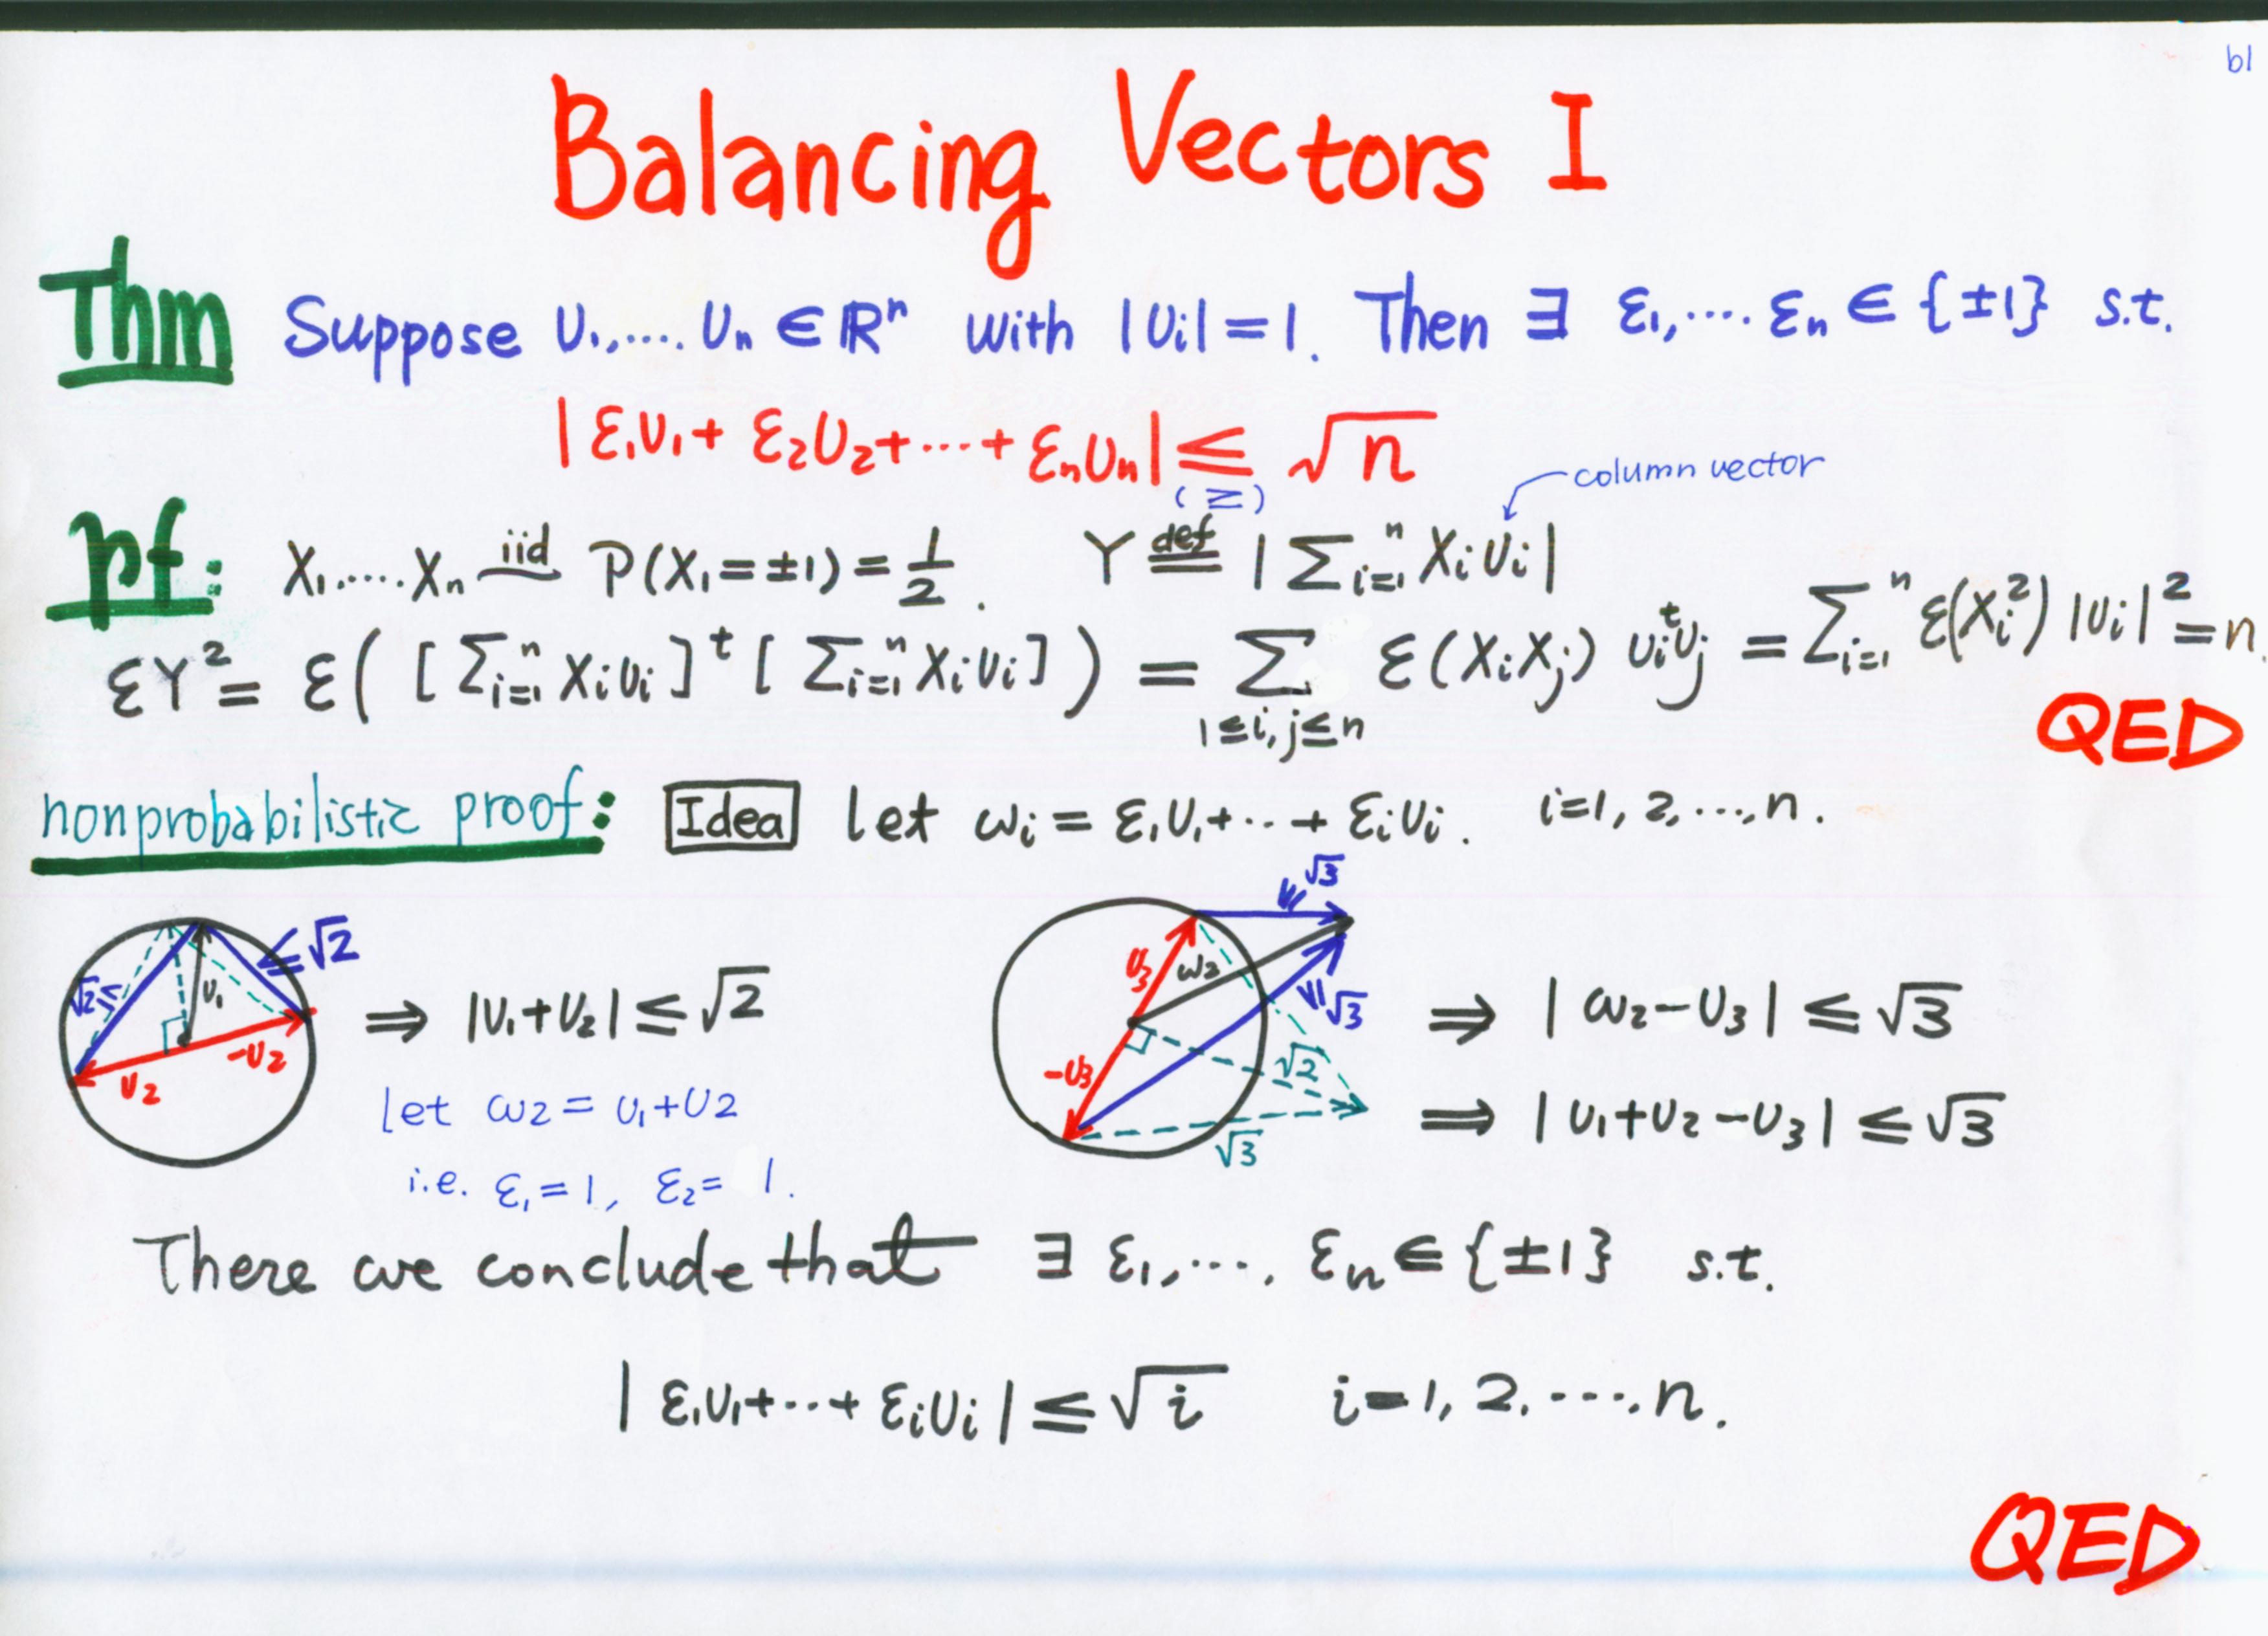 b1
Balancing Vectors I
Thm Suppose v₁,.... vₙ ∈ ℝⁿ with |vᵢ| = 1. Then ∃ ε₁,.... εₙ ∈ {±1} s.t.
| ε₁v₁ + ε₂v₂ + ... + εₙvₙ | ≦ √n
(≥)
column vector
pf: X₁.....Xₙ iid P(X₁ = ±1) = 1/2. Y def= | Σᵢ₌₁ⁿ Xᵢvᵢ |
εY² = ε( [ Σᵢ₌₁ⁿ Xᵢvᵢ ]ᵗ [ Σᵢ₌₁ⁿ Xᵢvᵢ ] ) = Σ_{1≤i,j≤n} ε(XᵢXⱼ) vᵢᵗvⱼ = Σᵢ₌₁ⁿ ε(Xᵢ²) |vᵢ|² = n.
QED
nonprobabilistic proof: Idea Let ωᵢ = ε₁v₁ + ... + εᵢvᵢ. i=1, 2, ..., n.
≤√2
√2≥
v₁
v₂
-v₂
⇒ |v₁+v₂| ≤ √2
Let ω₂ = v₁+v₂
i.e. ε₁ = 1, ε₂ = 1.
√3
v₃
ω₂
√3
-v₃
√2
√3
⇒ | ω₂ - v₃ | ≤ √3
⇒ | v₁+v₂-v₃ | ≤ √3
There we conclude that ∃ ε₁,..., εₙ ∈ {±1} s.t.
| ε₁v₁ + ... + εᵢvᵢ | ≤ √i i=1, 2, ..., n.
QED